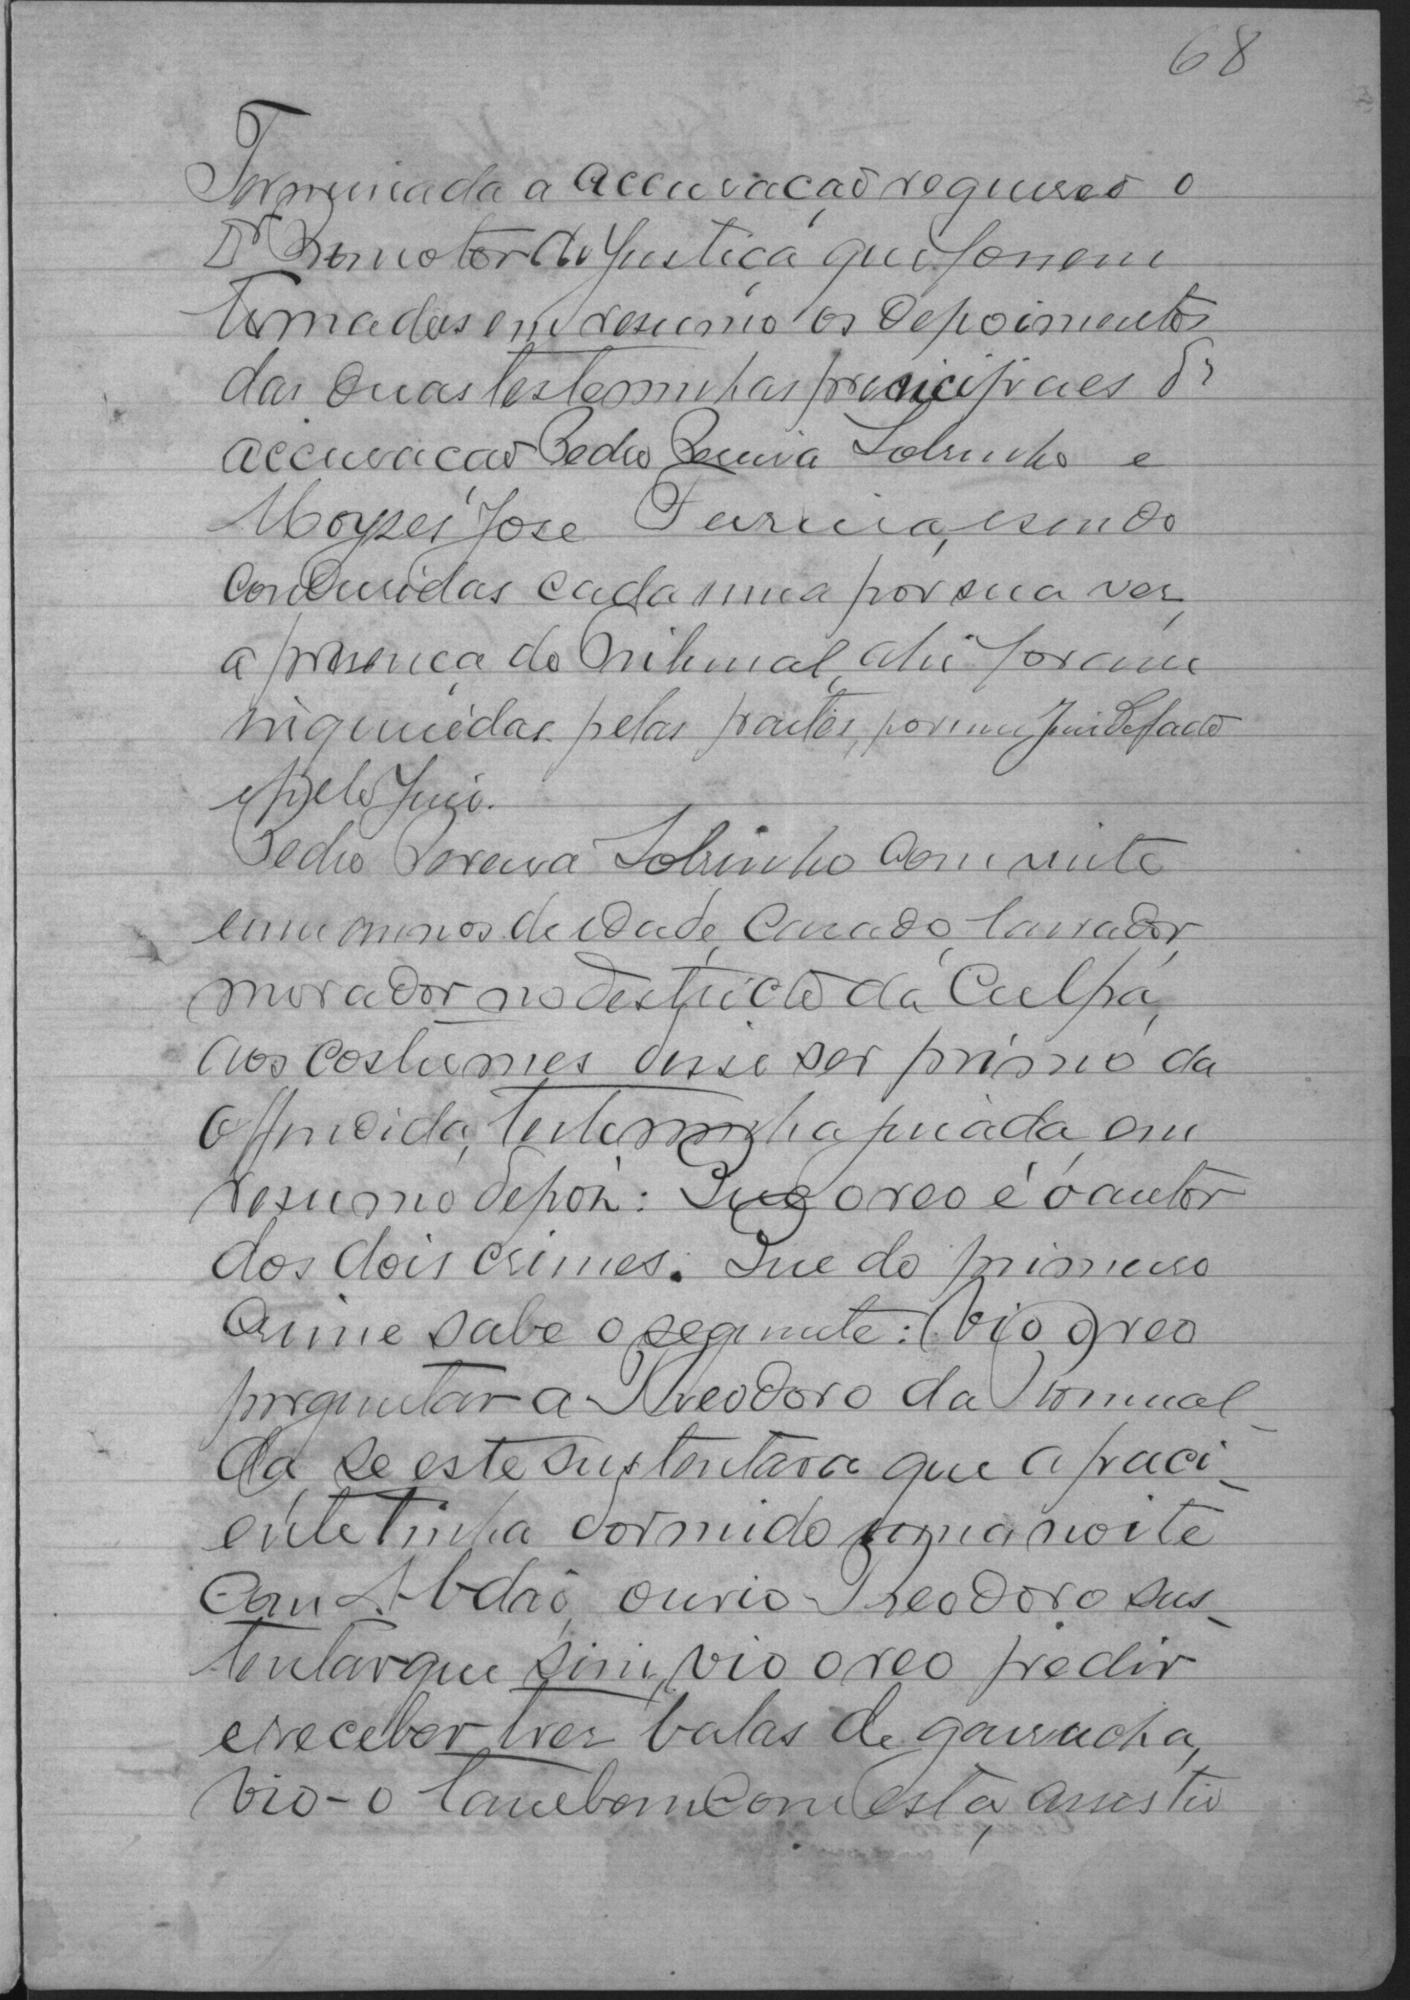 68
Terminada a accusação requereo o
Dr Promotor de Justiça que fossem
tomadas em resumo os depoimentos
das duas testemunhas principaes de
accusação Pedro Pereira Sobrinho e
Moysés José Pereira, e sendo
conduzidas cada uma por sua vez
a presença do Tribunal, ahi foram
inqueridas pelas partes, por um Juiz de facto
e pelo Juiz.
Pedro Pereira Sobrinho com vinte
e um annos de idade, casado, lavrador,
morador no destricto da Culpa,
aos costumes disse ser primo da
offendida, testemunha jurada, em
resumo depoz: Que o reo é o autor
dos dois crimes. Que do primeiro
crime sabe o seguinte: Vio o reo
perguntar a Theodoro da Romual-
da se este sustentava que a paci-
ente tinha dormido uma noite
com Abdão, ouvio Theodoro sus-
tentar que sim, vio o reo pedir
e receber trez balas de garrucha,
vio-o tambem com esta, assistio